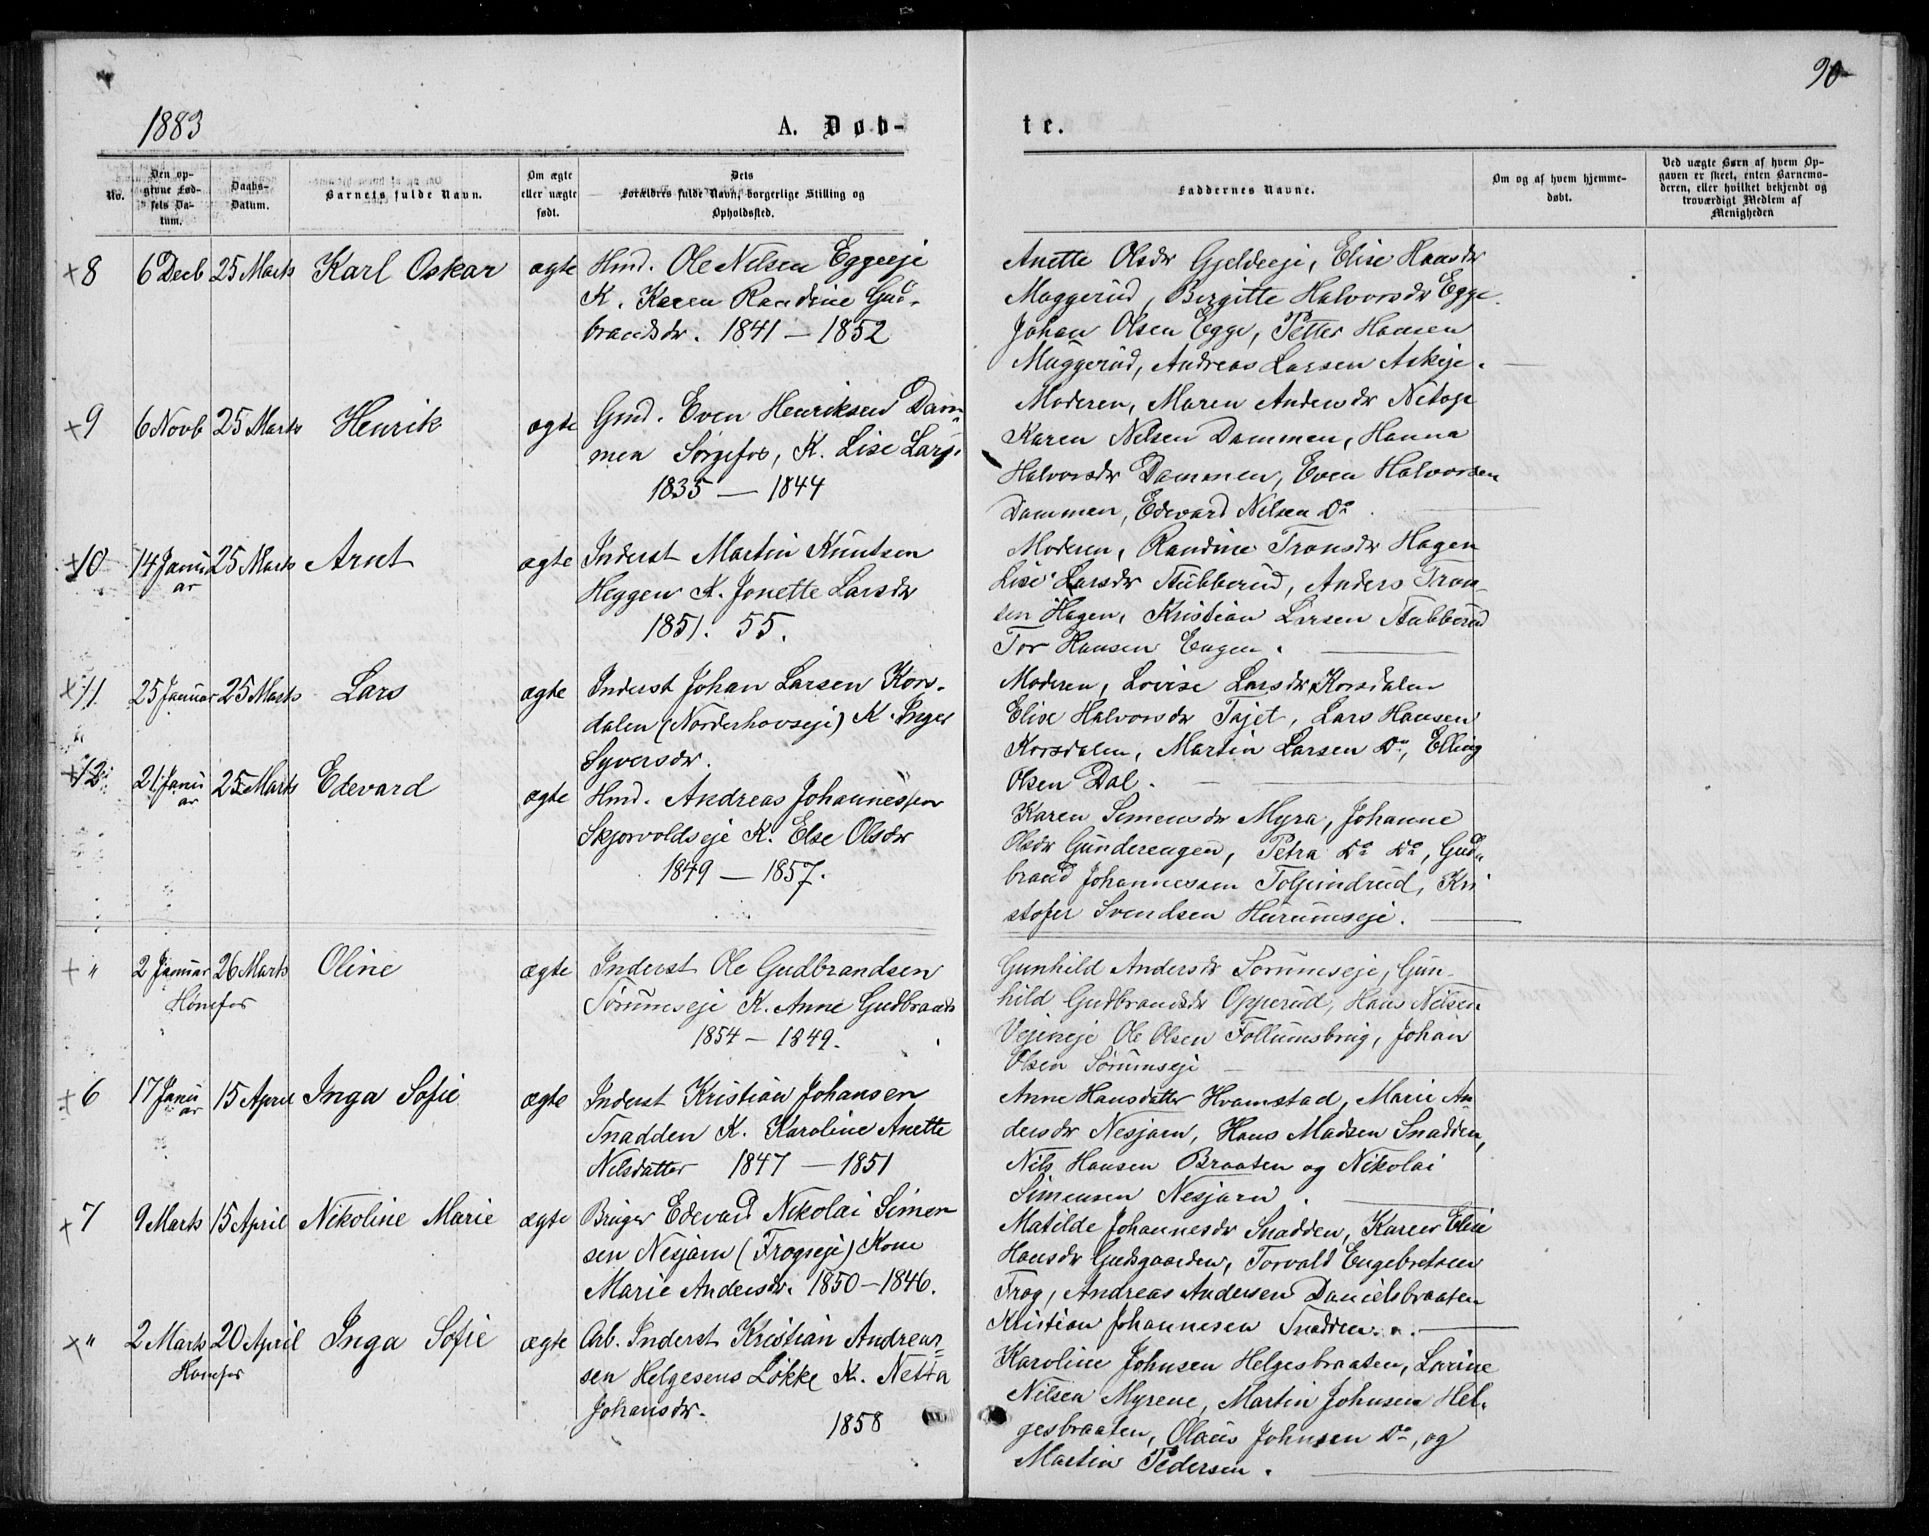 90
1883
A. Døb-
te.
No.
Den op-
givne Fød-
sels Da-
tum.
Daabs-
Datum.
Barnets fulde Navn.
Om ægte
eller uægte
født.
Dets
Forældres fulde Navn, borgerlige Stilling og
Opholdssted.
Faddernes Navne.
Om og af hvem hjemme-
døbt.
Ved uægte Børn af hvem Op-
gaven er skeet, enten Barnemo-
deren, eller hvilket bekjendt og
troværdigt Medlem af
Menigheden
×8 6 Decb 25 Marts Karl Oskar ægte Hmd. Ole Nilsen Eggeeje
K. Karen Randine Gud-
brandsdr. 1841 — 1852
Anette Olsdr Gjeldeeje, Elise Hansdr
Muggerud, Birgitte Halvorsdr Egge.
Johan Olsen Egge, Petter Hansen
Muggerud, Andreas Larsen Askeje.
×9 6 Novb 25 Marts Henrik ægte Gmd. Even Henriksen Dam-
men Sørgefos, K. Lise Lars.
1835 — 1844
Moderen, Maren Andersdr
Karen Nilsen Dammen, Hanna
Halvorsdr Dammen, Even Halvorsen
Dammen, Edvard Nilsen Do
×10 14 Janu
ar 25 Marts Arnt ægte Inderst Martin Knutsen
Heggen K. Jonette Larsdr
1851. 55.
Moderen, Randine Transdr Hagen
Lise Larsdr Stubberud, Anders Tran-
sen Hagen, Kristian Larsen Stubberud
Tor Hansen Engen.
×11 25 Januar 25 Marts Lars ægte Inderst Johan Larsen Kors-
dalen (Norderhovseje) K. Inger
Syversdr.
Moderen, Lovise Larsdr Korsdalen
Elise Halvorsdr Tajet, Lars Hansen
Korsdalen, Martin Larsen Do, Elling
Olsen Dal.
×12 21 Janu
ar 25 Marts Edevard ægte Hmd. Andreas Johannessen
Skjorvoldseje K. Else Olsdr
1849 — 1857.
Karen Simensdr Myra, Johanne
Olsdr Gunderengen, Petra Do Do, Gud-
brand Johannessen Tolpinrud, Kri
stofer Svendsen Hurumseje.
× " 2 Januar 26 Marts Oline ægte Inderst Ole Gudbrandsen
Hønefos
Sørumseje K. Anne Gudbrands
1854 — 1849.
Gunhild Andersdr Sørumseje, Gun-
hild Gudbrandsdr Opperud, Hans Nilsen
Vejeneje Ole Olsen Follumsbrug, Johan
Olsen Sørumseje
×6 17 Janu
ar 15 April Inga Sofie ægte Inderst Kristian Johansen
Snadden K. Karoline Anette
Nilsdatter 1847 — 1851
Anne Hansdatter Hvamstad, Marie An-
dersdr Nesjarn, Hans Madsen Snadden,
Nils Hansen Braaten og Nikolai
Simensen Nesjarn.
×7 9 Marts 15 April Nikoline Marie ægte Bruger Edevard Nikolai Simen
sen Nesjarn (Frogseje) Kone
Marie Andersdr. 1850 — 1846.
Matilde Johannesdr Snadden, Karen Elise
Hansdr Gudsgaarden, Torvald Engebretsen
Frog, Andreas Andersen Danielsbraaten
Kristian Johannesen Snadden.
× " 2 Marts 20 April Inga Sofie ægte Arb. Inderst Kristian Andreas-
Hønefos
sen Helgesens Løkke K. Netta
Johansdr.
1858
Karoline Johnsen Helgesbraaten, Lovine
Nilsen Myrene, Martin Johnsen Hel-
gesbraaten, Olaus Johnsen Do, og
Martin Pedersen.